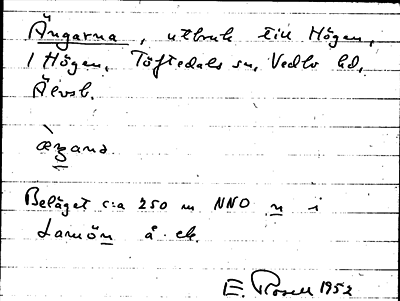 Ängarna, utbruk till Högen,
1 Högen, Töftedals sn, Vedbo hd,
Älvsb.
Beläget c:a 250 m NNO n i
å ek.
E. Rosell 1952